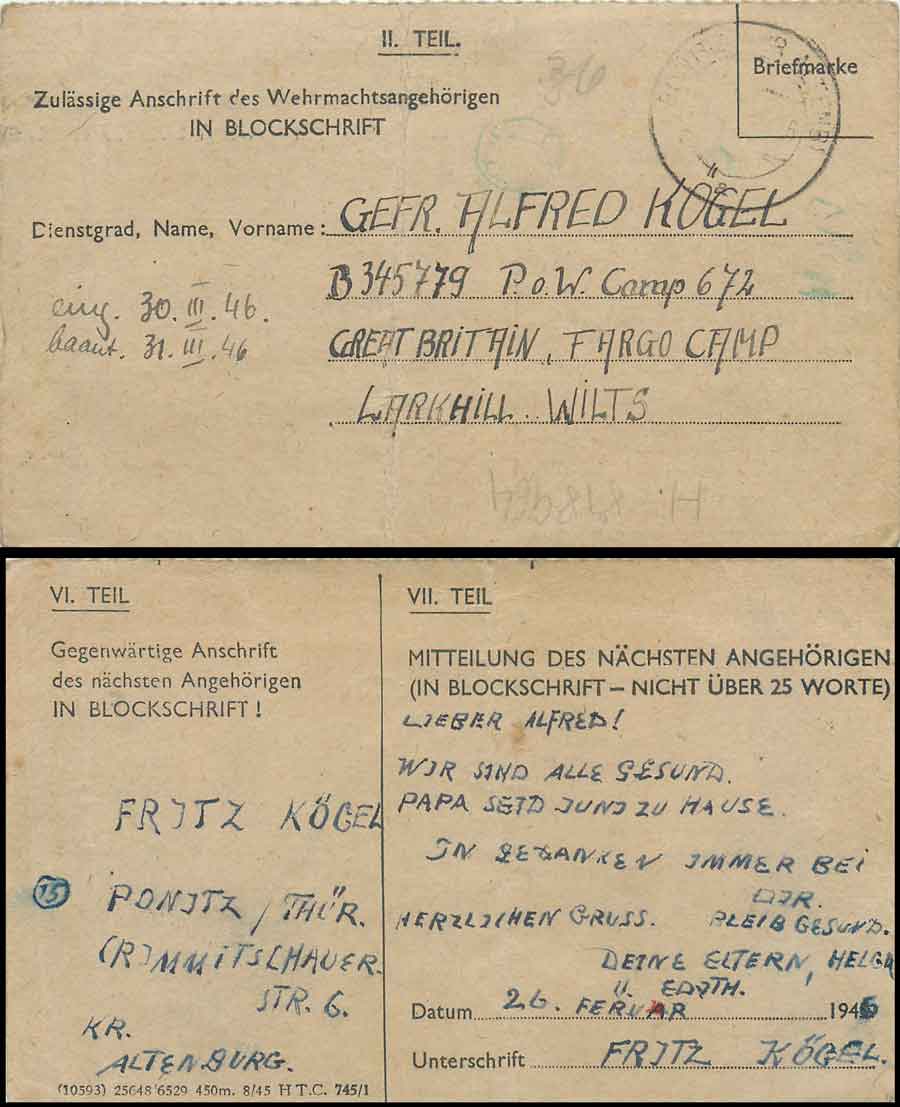 II. TEIL.
Briefmarke
36
Zulässige Anschrift des Wehrmachtsangehörigen
IN BLOCKSCHRIFT
Dienstgrad, Name, Vorname: GEFR. ALFRED KÖGEL
B345779 P.o.W. Camp 672
eing. 30. III. 46.
GREAT BRITTAIN, FARGO CAMP
baant. 31. III. 46
LARKHILL. WILTS
VI. TEIL
Gegenwärtige Anschrift
des nächsten Angehörigen
IN BLOCKSCHRIFT!
FRITZ KÖGEL
15
PONITZ / THÜR.
(R)MMITSCHAUER.
STR. 6.
KR.
ALTENBURG.
(10593) 25648/6529 450m. 8/45 H.T.C. 745/1
VII. TEIL
MITTEILUNG DES NÄCHSTEN ANGEHÖRIGEN
(IN BLOCKSCHRIFT – NICHT ÜBER 25 WORTE)
LIEBER ALFRED!
WIR SIND ALLE GESUND.
PAPA SEID JUNI ZU HAUSE.
IN GEDANKEN IMMER BEI
DIR.
HERZLICHEN GRUSS. BLEIB GESUND.
DEINE ELTERN, HELGA
U. EDITH.
Datum 26. FERUAR 1946
Unterschrift FRITZ KÖGEL.